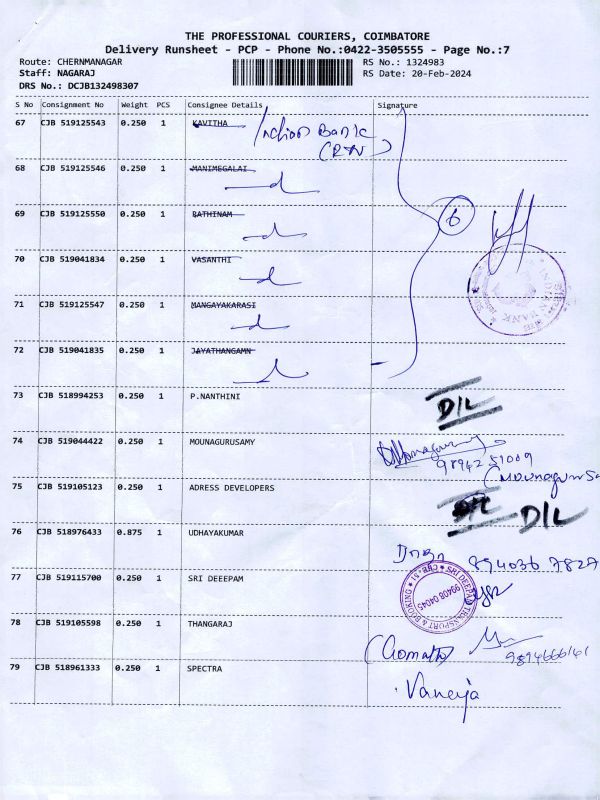 THE PROFESSIONAL COURIERS, COIMBATORE
Delivery Runsheet - PCP - Phone No.:0422-3505555 - Page No.:7
Route: CHERNMANAGAR
RS No.: 1324983
Staff: NAGARAJ
RS Date: 20-Feb-2024
DRS No.: DCJB132498307
S No Consignment No Weight PCS Consignee Details Signature
67 CJB 519125543 0.250 1 KAVITHA Indian Bank
68 CJB 519125546 0.250 1 MANIMEGALAI
69 CJB 519125550 0.250 1 RATHINAM
6
70 CJB 519041834 0.250 1 VASANTHI
INDIAN BANK
71 CJB 519125547 0.250 1 MANGAYAKARASI
72 CJB 519041835 0.250 1 JAYATHANGAMN
73 CJB 518994253 0.250 1 P.NANTHINI D/L
74 CJB 519044422 0.250 1 MOUNAGURUSAMY
9894251009
75 CJB 519105123 0.250 1 ADRESS DEVELOPERS
D/L D/L
76 CJB 518976433 0.875 1 UDHAYAKUMAR
77 CJB 519115700 0.250 1 SRI DEEEPAM
SRI DEEPAM TRANSPORT & BOOKING
99408 04045
78 CJB 519105598 0.250 1 THANGARAJ
(Gomathy
9894666141
79 CJB 518961333 0.250 1 SPECTRA
Vaneeja